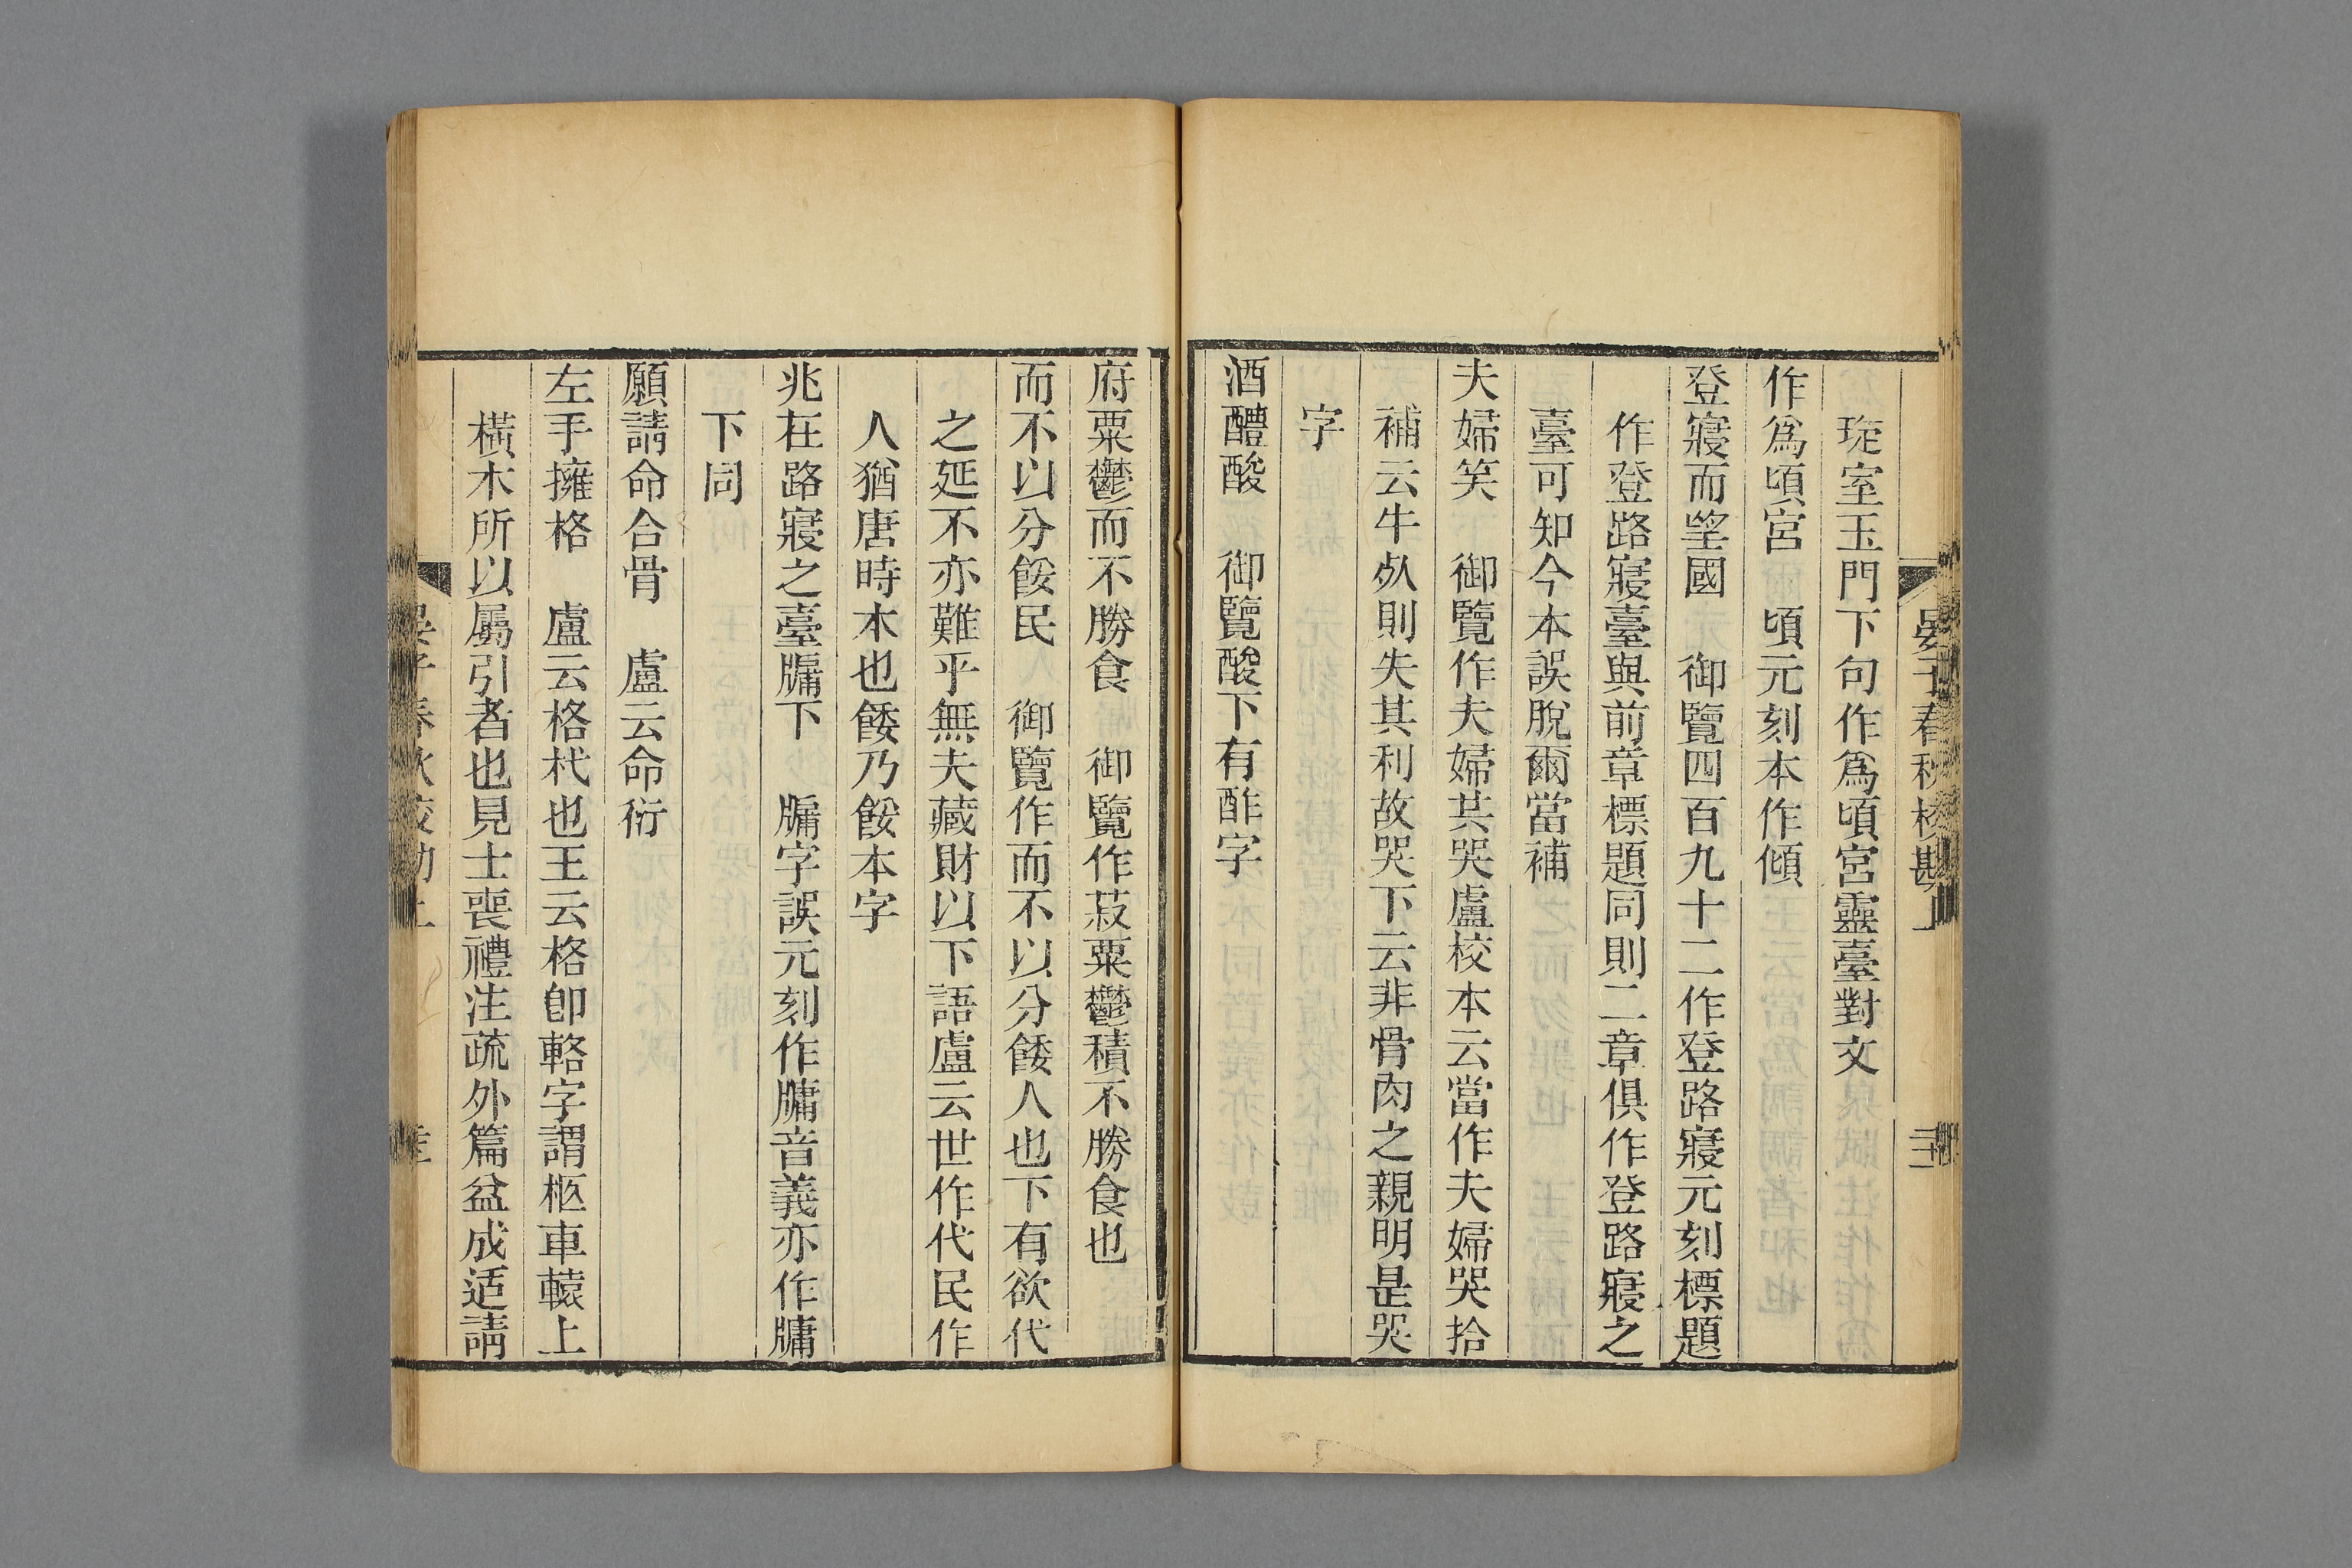 琁室玉門下句作爲頃宮靈臺對文
作爲頃宮　頃元刻本作傾
登寢而望國　御覽四百九十二作登路寢元刻標題
作登路寢臺與前章標題同則二章俱作登路寢之
臺可知今本誤脫爾當補
夫婦笑　御覽作夫婦共哭盧校本云當作夫婦哭拾
補云牛㱙則失其利故哭下云非骨肉之親明是哭
字
酒醴酸　御覽酸下有酢字
府粟鬱而不勝食　御覽作菽粟鬱積不勝食也
而不以分餒民　御覽作而不以分餧人也下有欲代
之延不亦難乎無夫藏財以下語盧云世作代民作
人猶唐時本也餧乃餒本字
兆在路寢之臺牖下　牖字誤元刻作牗音義亦作牗
下同
願請命合骨　盧云命衍
左手擁格　盧云格杙也王云格卽輅字謂柩車轅上
橫木所以屬引者也見士喪禮注疏外篇盆成适請
晏子春秋校勘上